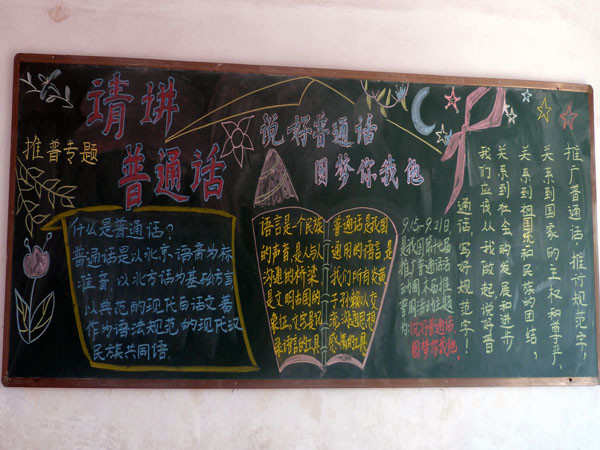 请讲
普通话
推普专题
说好普通话
圆梦你我他
什么是普通话?
普通话是以北京语音为标
准音,以北方话为基础方言
以典范的现代白话文著
作为语法规范的现代汉
民族共同语.
语言是一个民族
的声音,是人与人
沟通的桥梁
是文明古国的
象征.文字是记
录语言的工具
普通话是我国
通用的语言是
我们所有炎黄
子孙
9.15-9.21日
是我国第
推广普通话
说好普通话
圆梦你我他.
推广普通话,推行规范字,
关系到国家的主权和尊严,
关系到祖国和民族的团结,
关系到社会的发展和进步
我们应该从我做起说好普
通话,写好规范字!